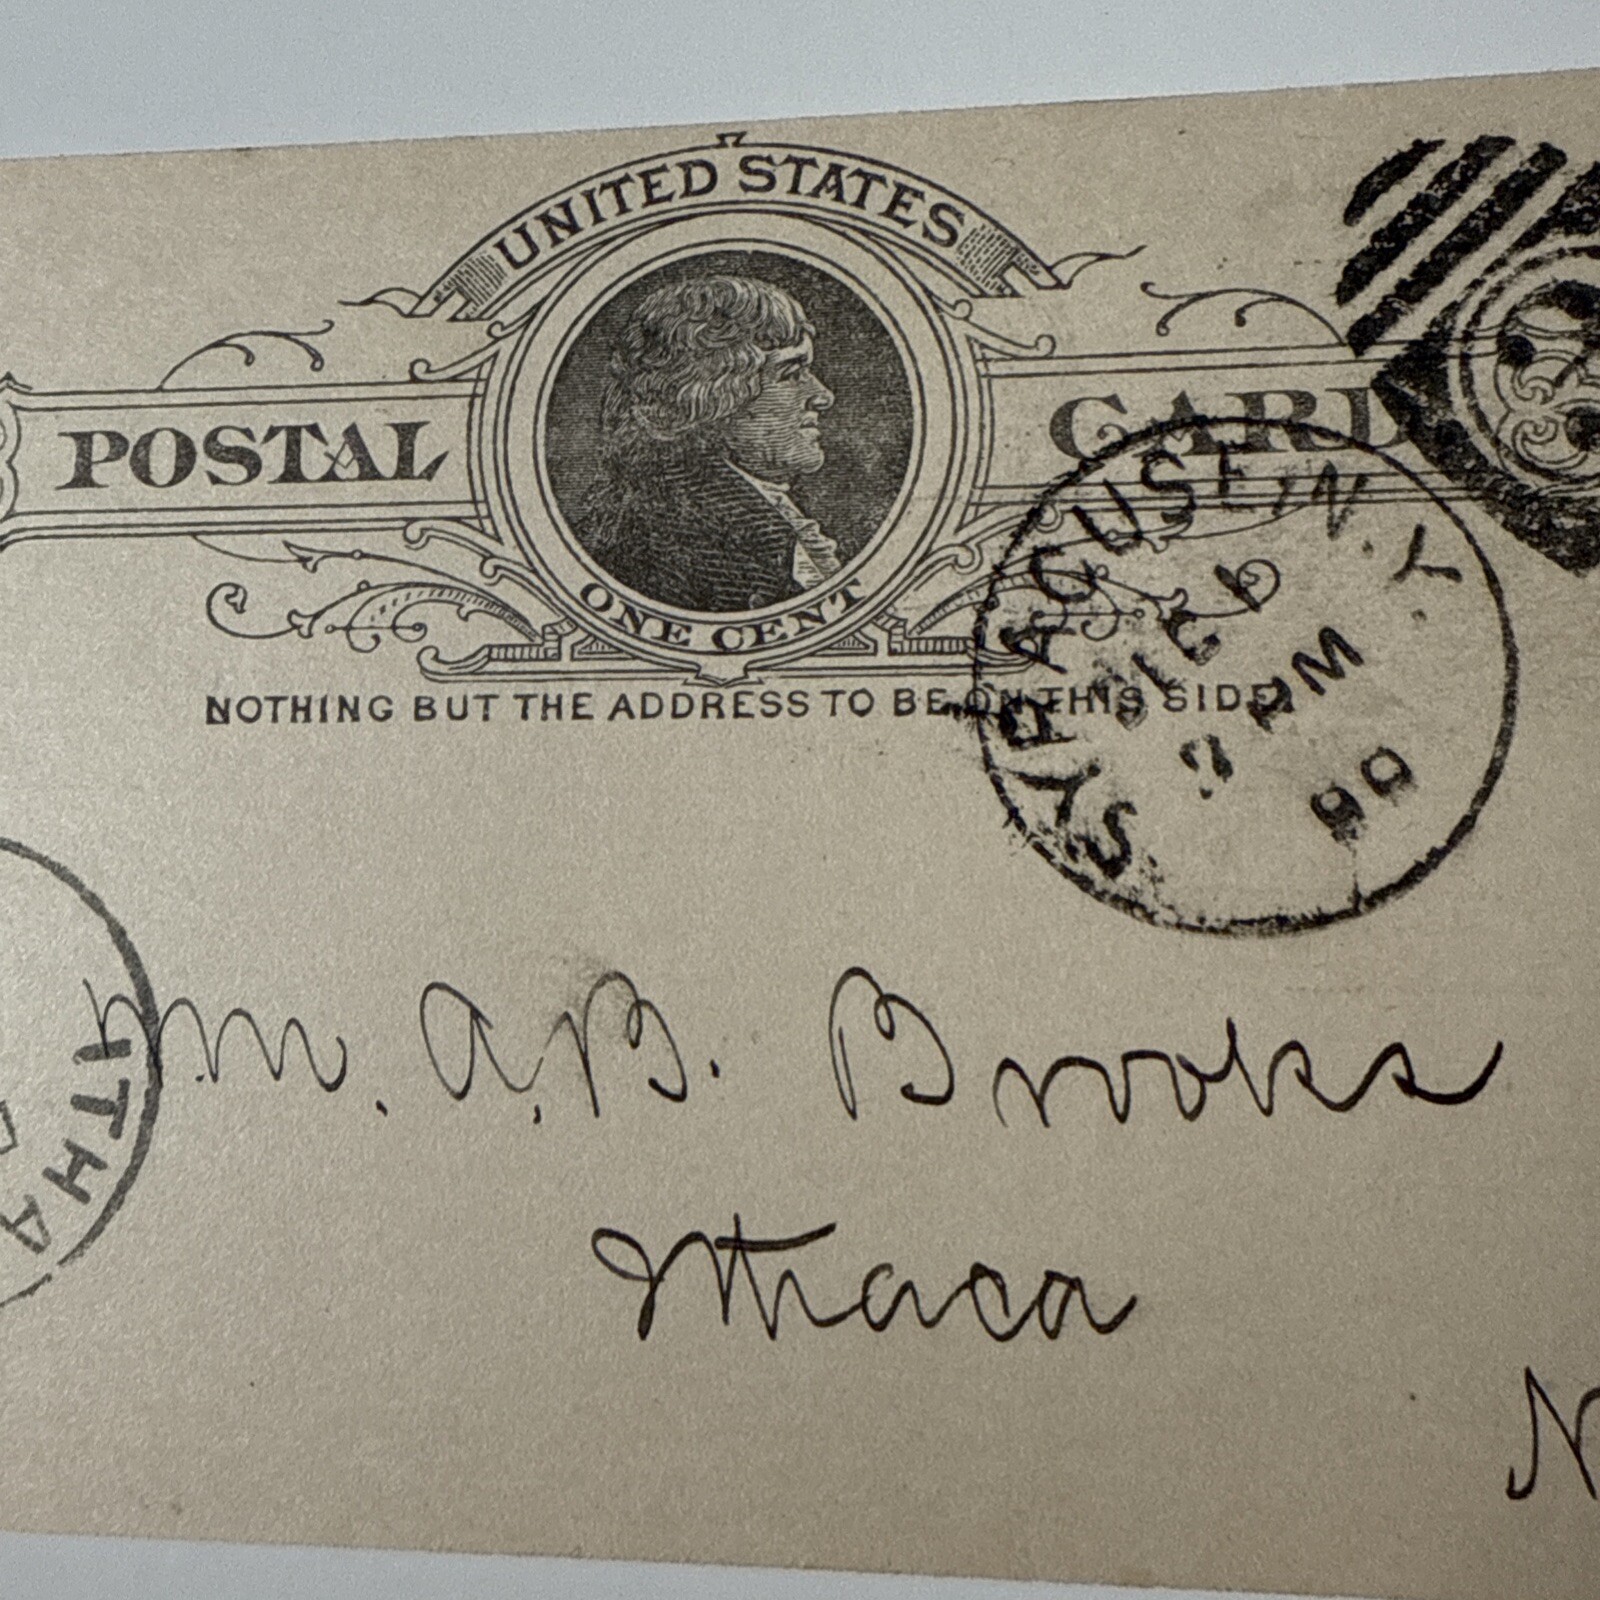 UNITED STATES
POSTAL CARD
ONE CENT
NOTHING BUT THE ADDRESS TO BE ON THIS SIDE.
SYRACUSE, N.Y.
PM
90
ITHA
A.B. Brooks
Ithaca
N